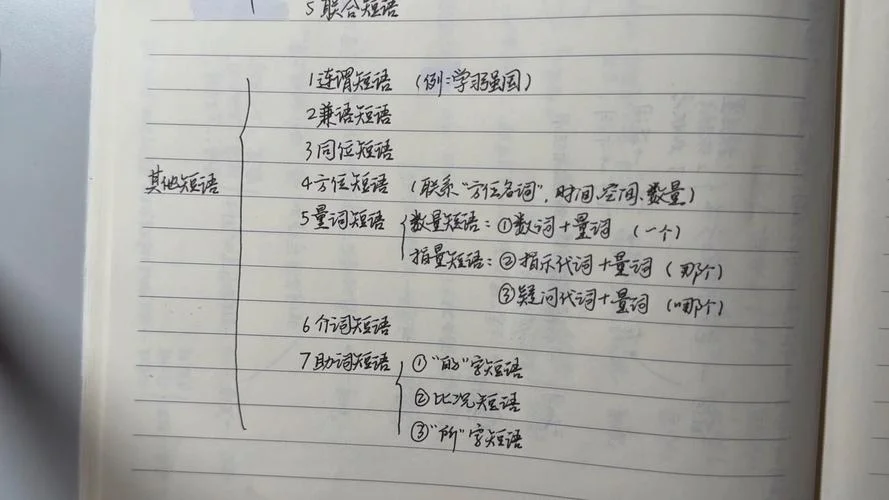 5 联合短语
1 连谓短语 (例:学习强国)
2 兼语短语
3 同位短语
其他短语
4 方位短语 (联系"方位名词", 时间、空间、数量)
5 量词短语 数量短语: ①数词+量词 (一个)
指量短语: ②指示代词+量词 (那个)
③疑问代词+量词 (哪个)
6 介词短语
7 助词短语 ①"的"字短语
②比况短语
③"所"字短语